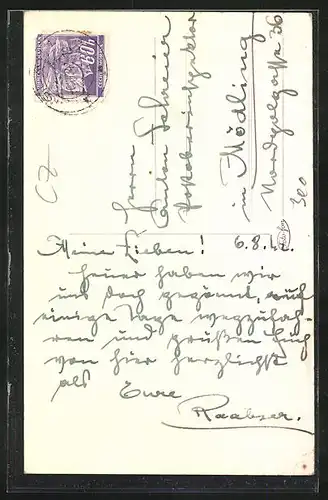 Herrn
Anton Schreier
Postoberinspektor
in Mödling
Nordpolgasse 36
300
CZ
Meine Lieben! 6.8.42.
Heuer haben wir
uns doch gegönnt, auch
einige Tage wegzufah-
ren und grüßen Euch
von hier herzlichst
als
Eure
Raabser.